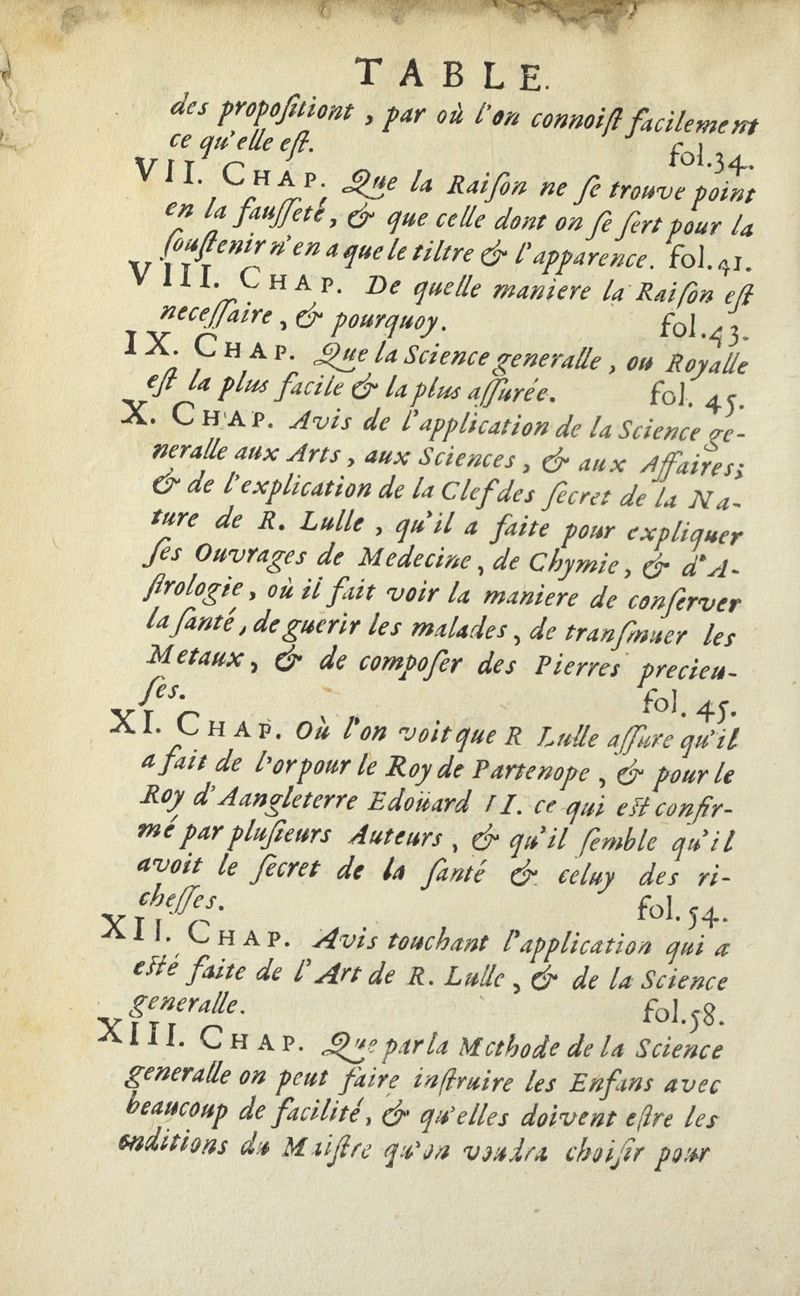 TABLE.
des propoſitiont , par où l'on connoiſt facilement
ce qu'elle eſt. fol.34.
VII. CHAP. Que la Raiſon ne ſe trouve point
en la fauſſeté, & que celle dont on ſe ſert pour la
ſouſtenir n'en a que le tiltre & l'apparence. fol.41.
VIII. CHAP. De quelle maniere la Raiſon eſt
neceſſaire , & pourquoy. fol.43.
IX. CHAP. Que la Science generalle , ou Royalle
eſt la plus facile & la plus aſſurée. fol. 45.
X. CHAP. Avis de l'application de la Science ge-
neralle aux Arts , aux Sciences , & aux Affaires;
& de l'explication de la Clef des ſecret de la Na-
ture de R. Lulle , qu'il a faite pour expliquer
ſes Ouvrages de Medecine , de Chymie , & d'A-
ſtrologie , où il fait voir la maniere de conſerver
la ſanté, de guerir les malades , de tranſmuer les
Metaux , & de compoſer des Pierres precieu-
ſes. fol. 45.
XI. CHAP. Où l'on voit que R Lulle aſſure qu'il
a fait de l'or pour le Roy de Partenope , & pour le
Roy d'Aangleterre Edoüard II. ce qui eſt confir-
mé par pluſieurs Auteurs , & qu'il ſemble qu'il
avoit le ſecret de la ſanté & celuy des ri-
cheſſes. fol. 54.
XII. CHAP. Avis touchant l'application qui a
eſté faite de l'Art de R. Lulle , & de la Science
generalle. fol.58.
XIII. CHAP. Que par la Methode de la Science
generalle on peut faire inſtruire les Enfans avec
beaucoup de facilité, & qu'elles doivent eſtre les
onditions du Maiſtre qu'on voudra choiſir pour